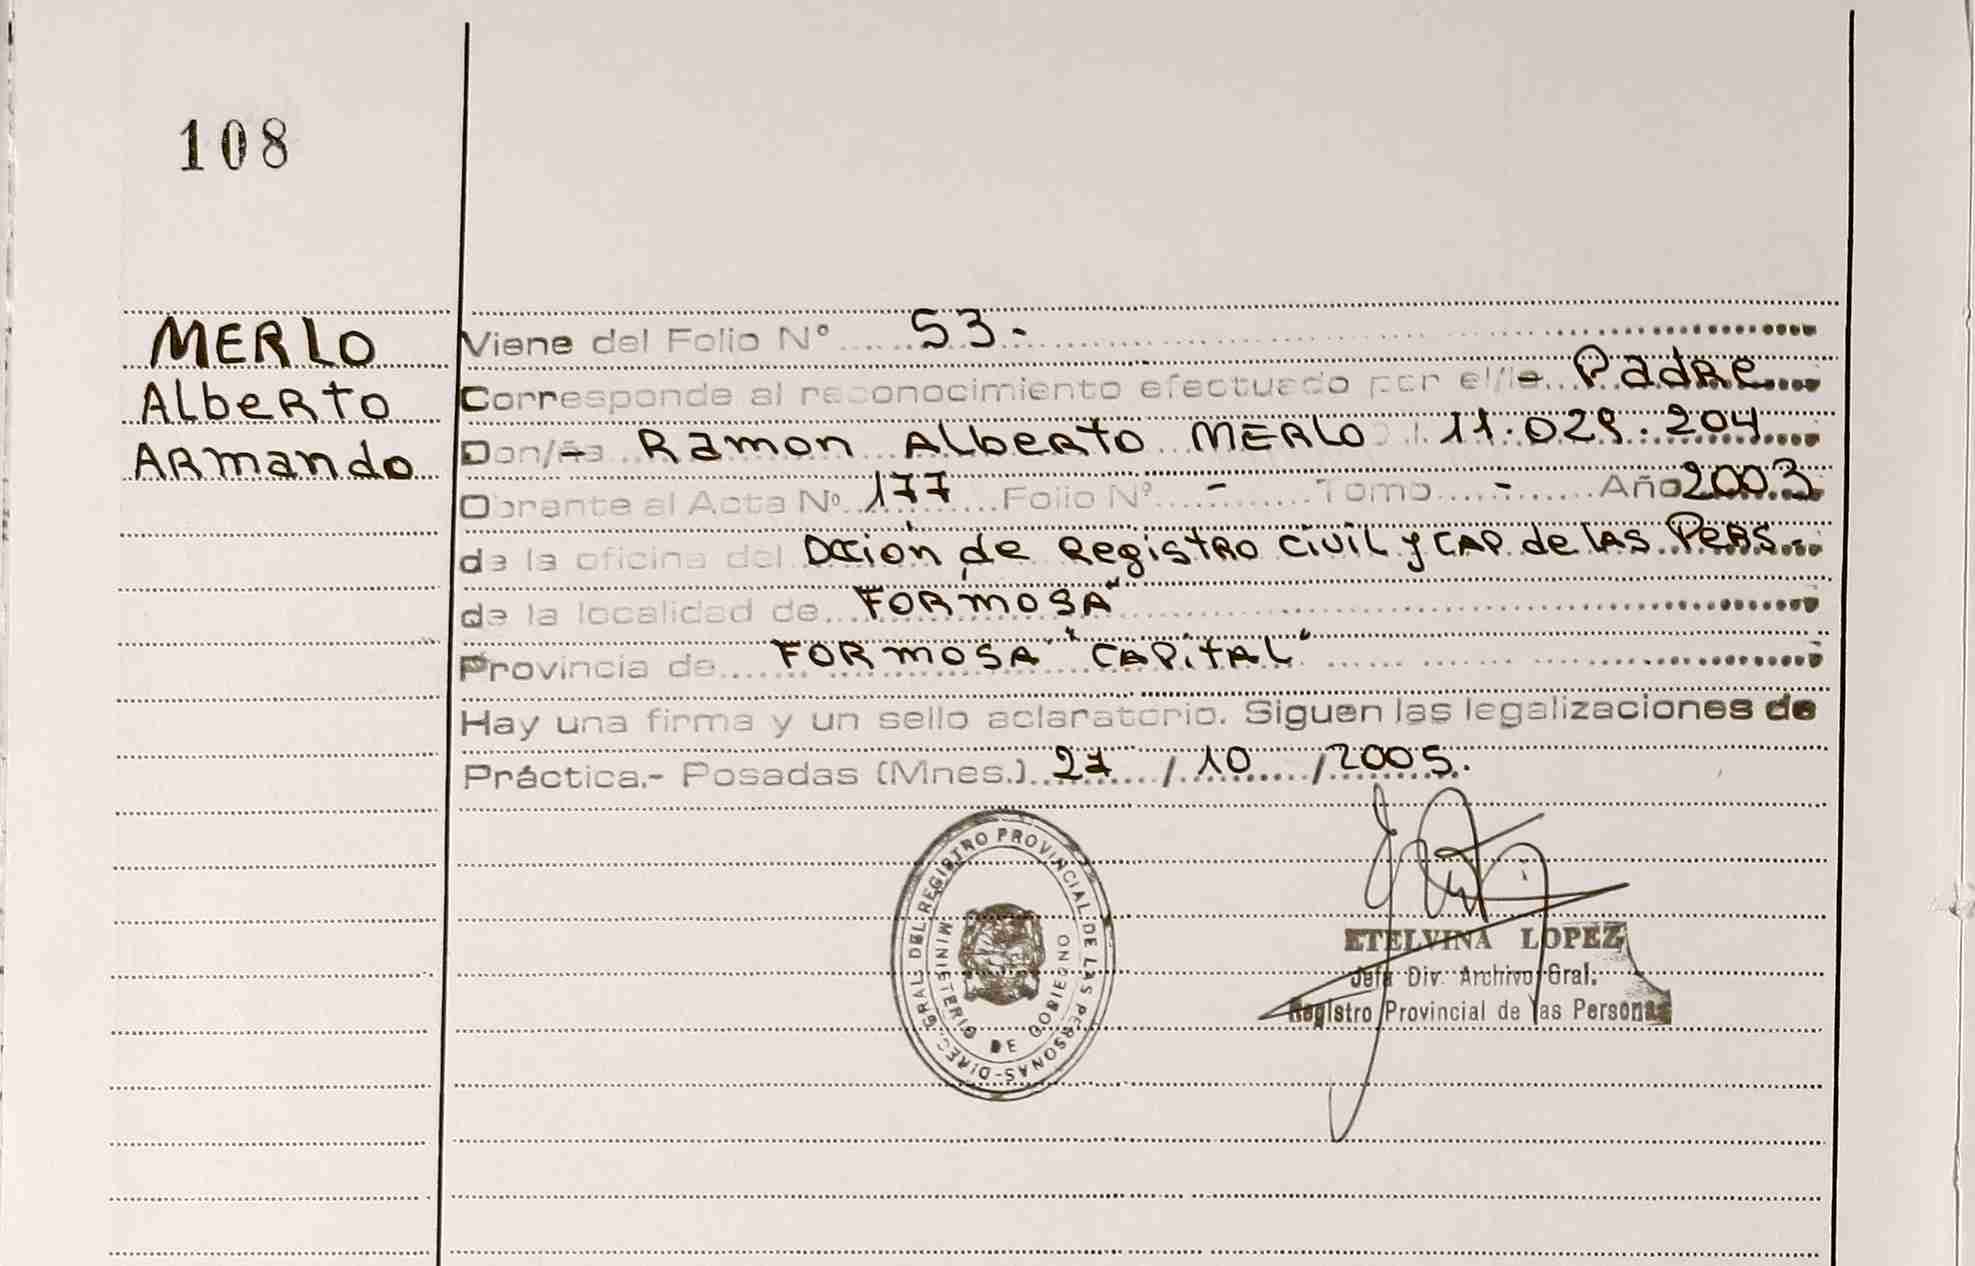 108
MERLO
Alberto
Armando
Viene del Folio N° 53.-
Corresponde al reconocimiento efectuado por el/la Padre
Don/ña Ramon Alberto MERLO 11.029.204
Obrante al Acta Nº 177 Folio Nº - Tomo - Año 2003
de la oficina del Dccion de Registro Civil y CAP. de las Pers.
de la localidad de FORMOSA"
Provincia de FORMOSA "CAPITAL"
Hay una firma y un sello aclaratorio. Siguen las legalizaciones de
Práctica.- Posadas (Mnes.) 27 / 10 / 2005.
DIREC. GRAL DEL REGISTRO PROVINCIAL DE LAS PERSONAS-
MINISTERIO DE GOBIERNO
ETELVINA LOPEZ
Jefa Div. Archivo Gral.
Registro Provincial de las Personas